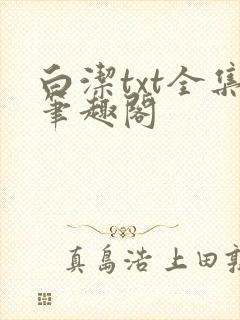 白潔txt全集
筆趣閣
真島浩 上田敦